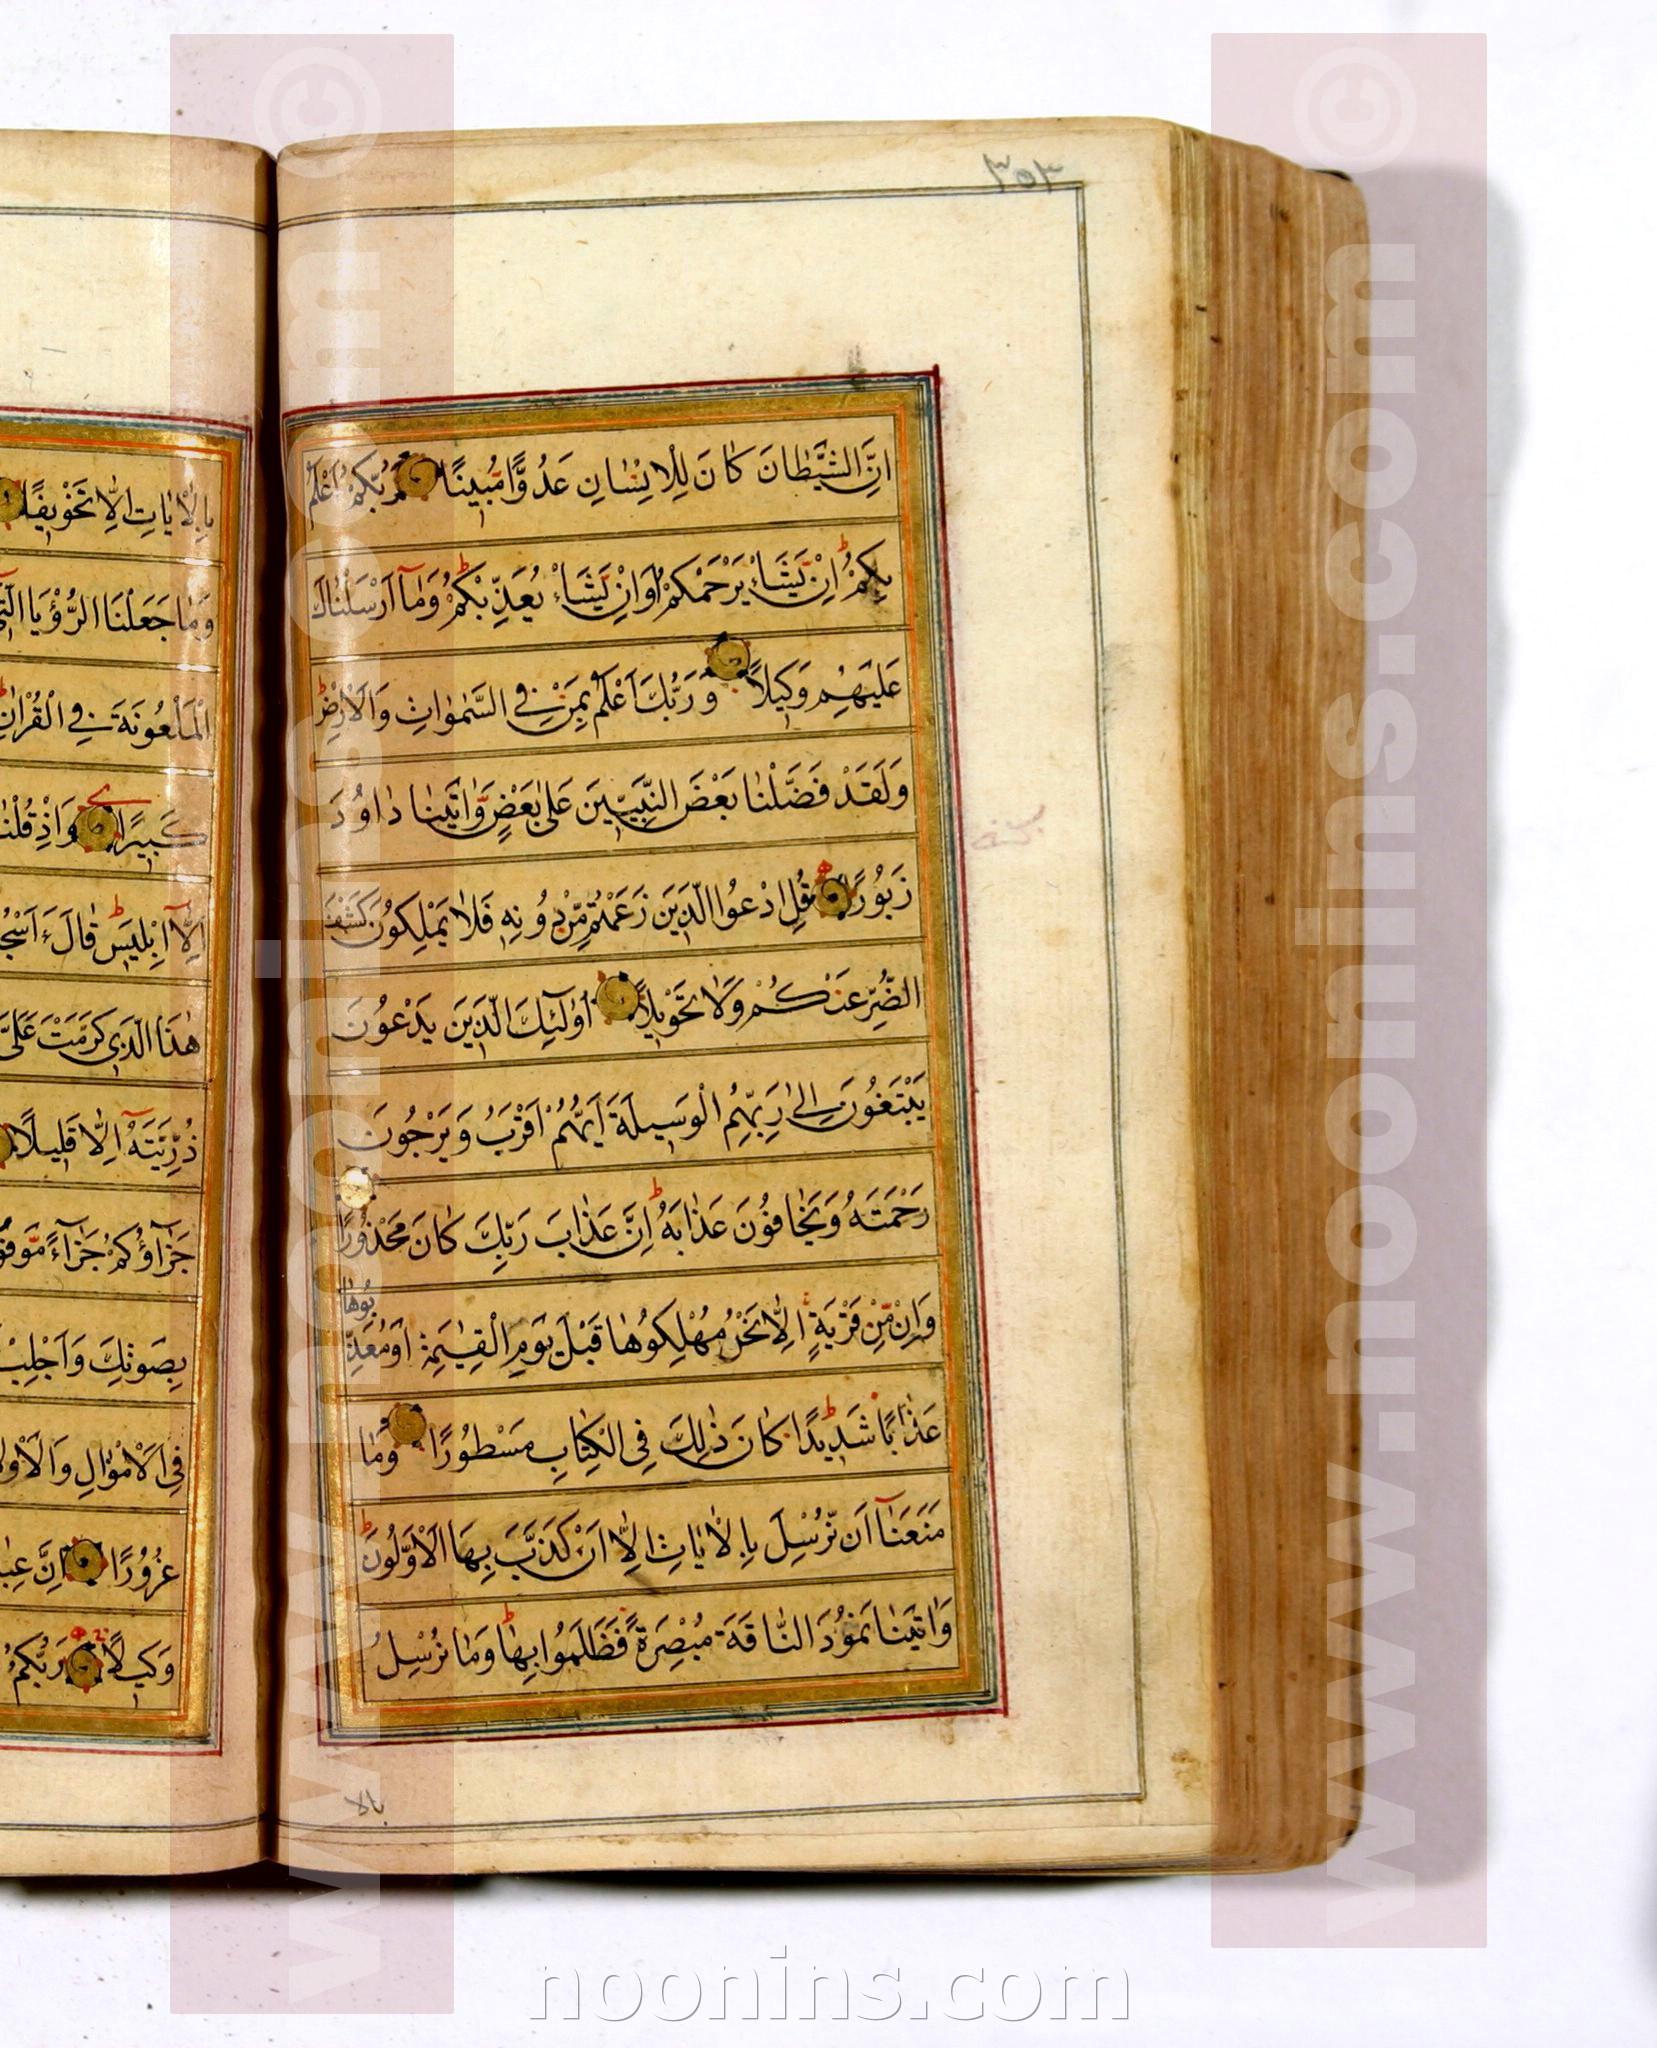 ۳۵۳
اِنَّ الشَّيْطَانَ كَانَ لِلْاِنْسَانِ عَدُوًّا مُبِينًا رَبُّكُمْ اَعْلَمُ
بِكُمْ اِنْ يَشَأْ يَرْحَمْكُمْ اَوْ اِنْ يَشَأْ يُعَذِّبْكُمْ وَمَآ اَرْسَلْنَاكَ
عَلَيْهِمْ وَكِيلًا وَرَبُّكَ اَعْلَمُ بِمَنْ فِي السَّمٰوَاتِ وَالْاَرْضِ
وَلَقَدْ فَضَّلْنَا بَعْضَ النَّبِيِّينَ عَلٰى بَعْضٍ وَاٰتَيْنَا دَاوُدَ
زَبُورًا قُلِ ادْعُوا الَّذِينَ زَعَمْتُمْ مِنْ دُونِهِ فَلَا يَمْلِكُونَ كَشْفَ
الضُّرِّ عَنْكُمْ وَلَا تَحْوِيلًا اُولٰٓئِكَ الَّذِينَ يَدْعُونَ
يَبْتَغُونَ اِلٰى رَبِّهِمُ الْوَسِيلَةَ اَيُّهُمْ اَقْرَبُ وَيَرْجُونَ
رَحْمَتَهُ وَيَخَافُونَ عَذَابَهُ اِنَّ عَذَابَ رَبِّكَ كَانَ مَحْذُورًا
وَاِنْ مِنْ قَرْيَةٍ اِلَّا نَحْنُ مُهْلِكُوهَا قَبْلَ يَوْمِ الْقِيٰمَةِ اَوْ مُعَذِّبُوهَا
عَذَابًا شَدِيدًا كَانَ ذٰلِكَ فِي الْكِتَابِ مَسْطُورًا وَمَا
مَنَعَنَآ اَنْ نُرْسِلَ بِالْاٰيَاتِ اِلَّا اَنْ كَذَّبَ بِهَا الْاَوَّلُونَ
وَاٰتَيْنَا ثَمُودَ النَّاقَةَ مُبْصِرَةً فَظَلَمُوا بِهَا وَمَا نُرْسِلُ
بالا
بِالْاٰيَاتِ اِلَّا تَخْوِيفًا
وَمَا جَعَلْنَا الرُّؤْيَا الَّتِي
الْمَلْعُونَةَ فِي الْقُرْاٰنِ
كَبِيرًا وَاِذْ قُلْنَا
اِلَّآ اِبْلِيسَ قَالَ ءَاَسْجُ
هٰذَا الَّذِي كَرَّمْتَ عَلَيَّ
ذُرِّيَّتَهُٓ اِلَّا قَلِيلًا
جَزَآؤُكُمْ جَزَآءً مَوْفُو
بِصَوْتِكَ وَاَجْلِبْ
فِي الْاَمْوَالِ وَالْاَوْلَا
غُرُورًا اِنَّ عِبَا
وَكِيلًا رَبُّكُمُ
www.noonins.com ©
www.noonins.com ©
noonins.com